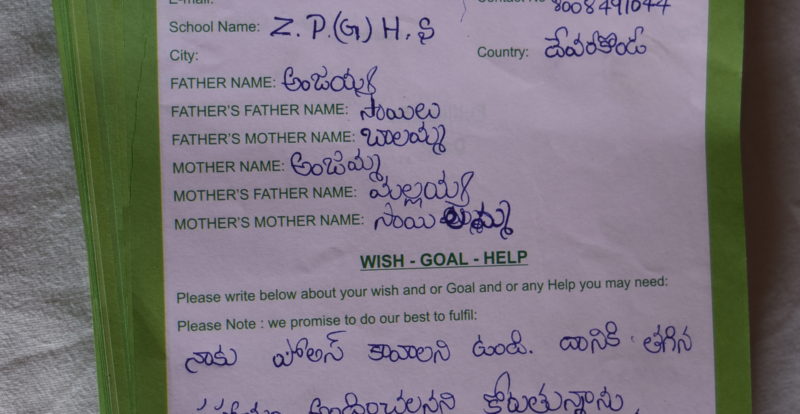 E-mail: Contact No 8008491644
School Name: Z.P.(G) H.S
City: Country: దేవరకొండ
FATHER NAME: అంజయ్య
FATHER'S FATHER NAME: సాయిలు
FATHER'S MOTHER NAME: బాలమ్మ
MOTHER NAME: అంజమ్మ
MOTHER'S FATHER NAME: మల్లయ్య
MOTHER'S MOTHER NAME: సాయిలమ్మ
WISH - GOAL - HELP
Please write below about your wish and or Goal and or any Help you may need:
Please Note : we promise to do our best to fulfil:
నాకు పోలిస్ కావాలని ఉంది. దానికి తగిన
అందించాలనని కోరుతున్నాను